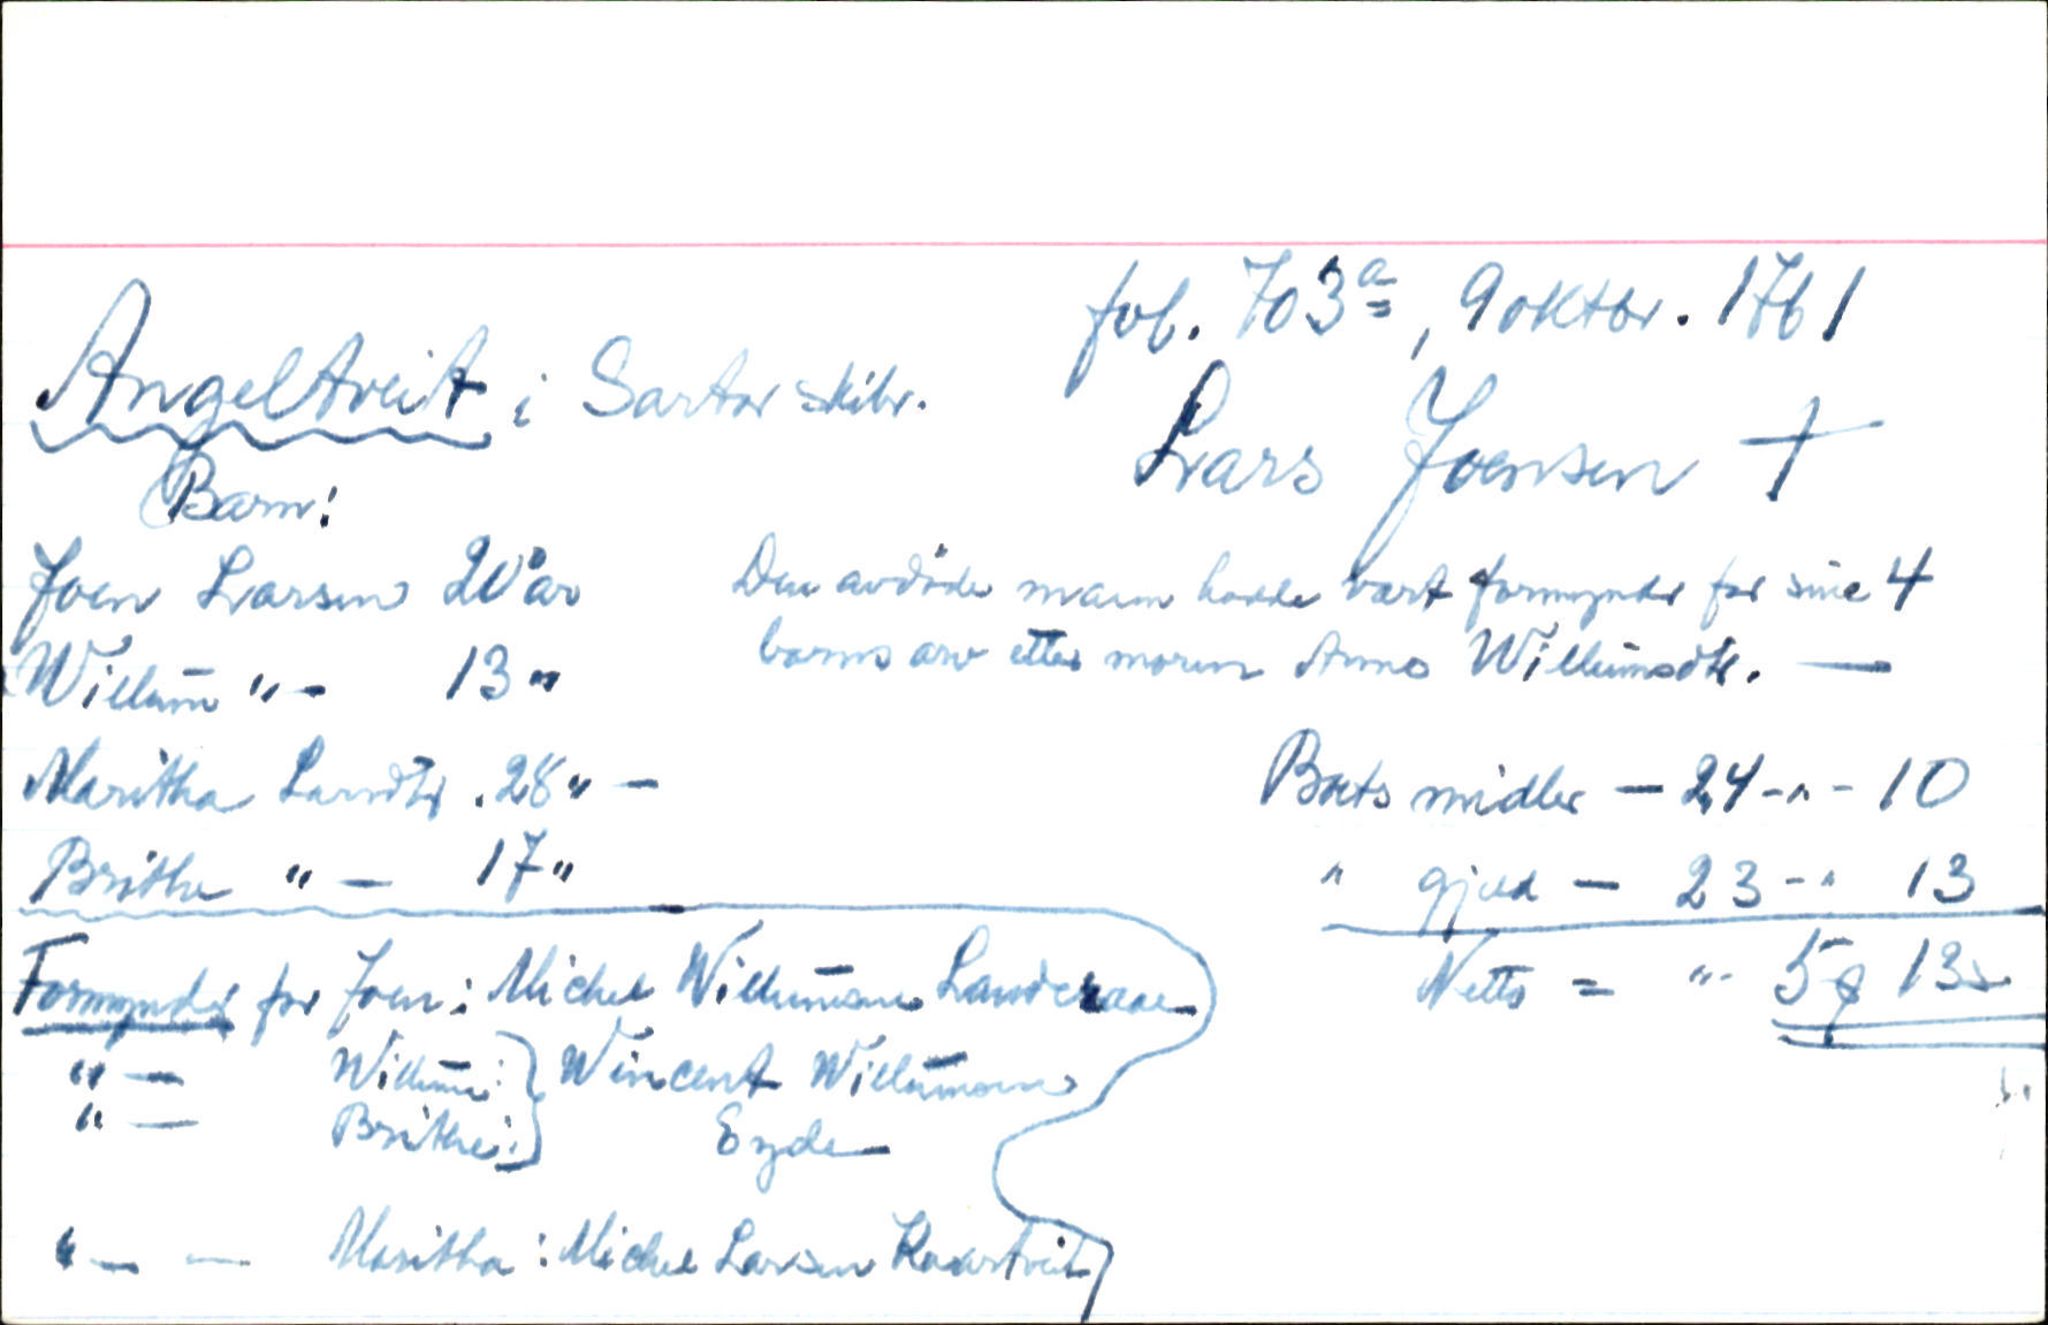 fol. 703a, 9 oktbr. 1761
Angeltveit i Sartor skibr.
Lars Joensen †
Barn:
Joen Larsen 20 år
Den avdöde mann hadde vært formynder for sine 4
Willum " - 13 "
barns arv etter moren Anna Willumsdtr. —
Maritha Larsdtr. 28 " —
Boets midler — 24 - " - 10
Brithe " — 17 "
" gjeld — 23 - " 13
Netto = " - 5 q 13 s
Formynder for Joen: Michel Willumsen Landeraae
" — Willum: } Wincent Willumsen
" — Brithe: } Eyde
" — — Maritha: Michel Larsen Kaartveit